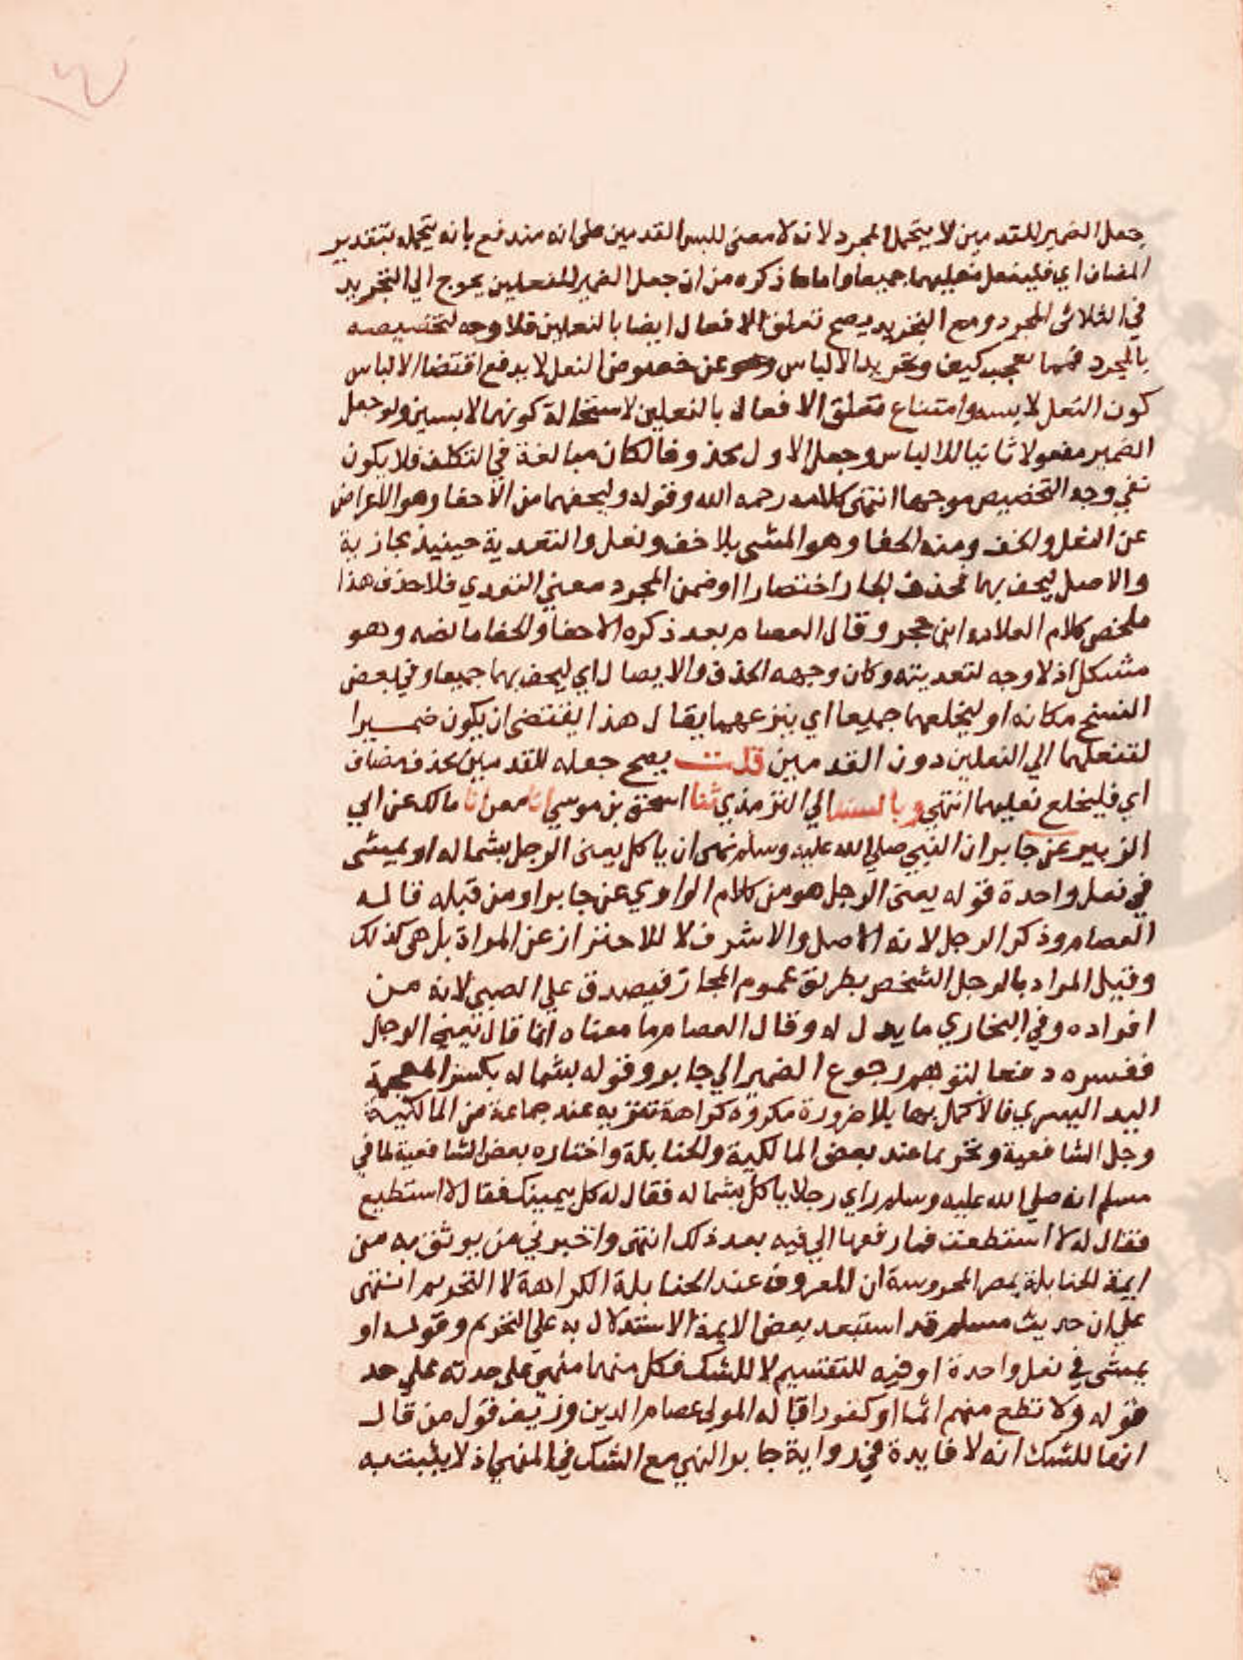 جعل الضمير للقدمين لا يتحمل المجرد لانه لا معنى للبس القدمين على انه مندفع بانه يتحمله بتقدير
المضاف اي فلينعل نعليهما جميعا واما ما ذكره من ان جعل الضمير للنعلين يحوج الي التجريد
في الثلاثى المجرد ومع التجريد يصح تعلق الافعال ايضا بالنعلين فلا وجه لتخصيصه
بالمجرد فهما عجب كيف وتجريد الالباس وهو عن خصوص النعل لا يدفع اقتضا الالباس
كون النعل لابسه وامتناع تعلق الافعال بالنعلين لاستحالة كونهما لابسين ولو جعل
الضمير مفعولا ثانيا للالباس وجعل الاول محذوفا لكان مبالغة في التكلف فلا يكون
نفي وجه التخصيص موجها انتهى كلامه رحمه الله وقوله وليحفهما من الاحفا وهو الاعراض
عن النعل والخف ومنه الحفا وهو المشى بلا خف ونعل والتعدية حينيذ مجازية
والاصل ليحف بهما فحذف الجار اختصارا او ضمن المجرد معنى التعدي فلا حذف هذا
ملخص كلام العلامه ابن حجر وقال العصام بعد ذكره الاحفا والحفا ما نصه وهو
مشكل اذ لا وجه لتعديته وكان وجهه الحذف والايصال اي ليحف بهما جميعا وفي بعض
النسخ مكانه او ليخلعهما جميعا اي ينزعهما يقال هذا يقتضى ان يكون ضميرا
لتنعلهما الي النعلين دون القدمين قلت يصح جعله للقدمين بحذف مضاف
اي فليخلع نعليهما انتهي وبالسند الي الترمذي ثنا اسحق بن موسي انا معن انا مالك عن ابي
الزبير عن جابر ان النبي صلي الله عليه وسلم نهى ان ياكل يعنى الرجل بشماله او يمشى
في نعل واحدة قوله يعنى الرجل هو من كلام الراوي عن جابر او من قبله قاله
العصام وذكر الرجل لانه الاصل والاشرف لا للاحتراز عن المراة بل هى كذلك
وقيل المراد بالرجل الشخص بطريق عموم المجاز فيصدق علي الصبي لانه من
افراده وفي البخاري ما يدل له وقال العصام ما معناه انما قال يعني الرجل
ففسره دفعا لتوهم رجوع الضمير الي جابر وقوله بشماله بكسر المعجمة
اليد اليسري فالاكل بها بلا ضرورة مكروه كراهة تنزيه عند جماعة من المالكية
وجل الشافعية وتحريما عند بعض المالكية والحنابلة واختاره بعض الشافعية لما في
مسلم انه صلي الله عليه وسلم راي رجلا ياكل بشماله فقال له كل بيمينك فقال لا استطيع
فقال له لا استطعت فما رفعها الي فيه بعد ذلك انتهى واخبرني من يوثق به من
ايمة الحنابلة بمصر المحروسة ان المعروف عند الحنابلة الكراهة لا التحريم انتهى
علي ان حديث مسلم قد استبعد بعض الايمة الاستدلال به علي التحريم وقوله او
يمشى في نعل واحدة او فيه للتقسيم لا للشك فكل منهما منهي على حدته علي حد
قوله ولا تطع منهم اثما او كفورا قاله المولى عصام الدين وزيف قول من قال
انها للشك انه لا فايدة في رواية جابر النهي مع الشك في المنهي اذ لا يثبت به